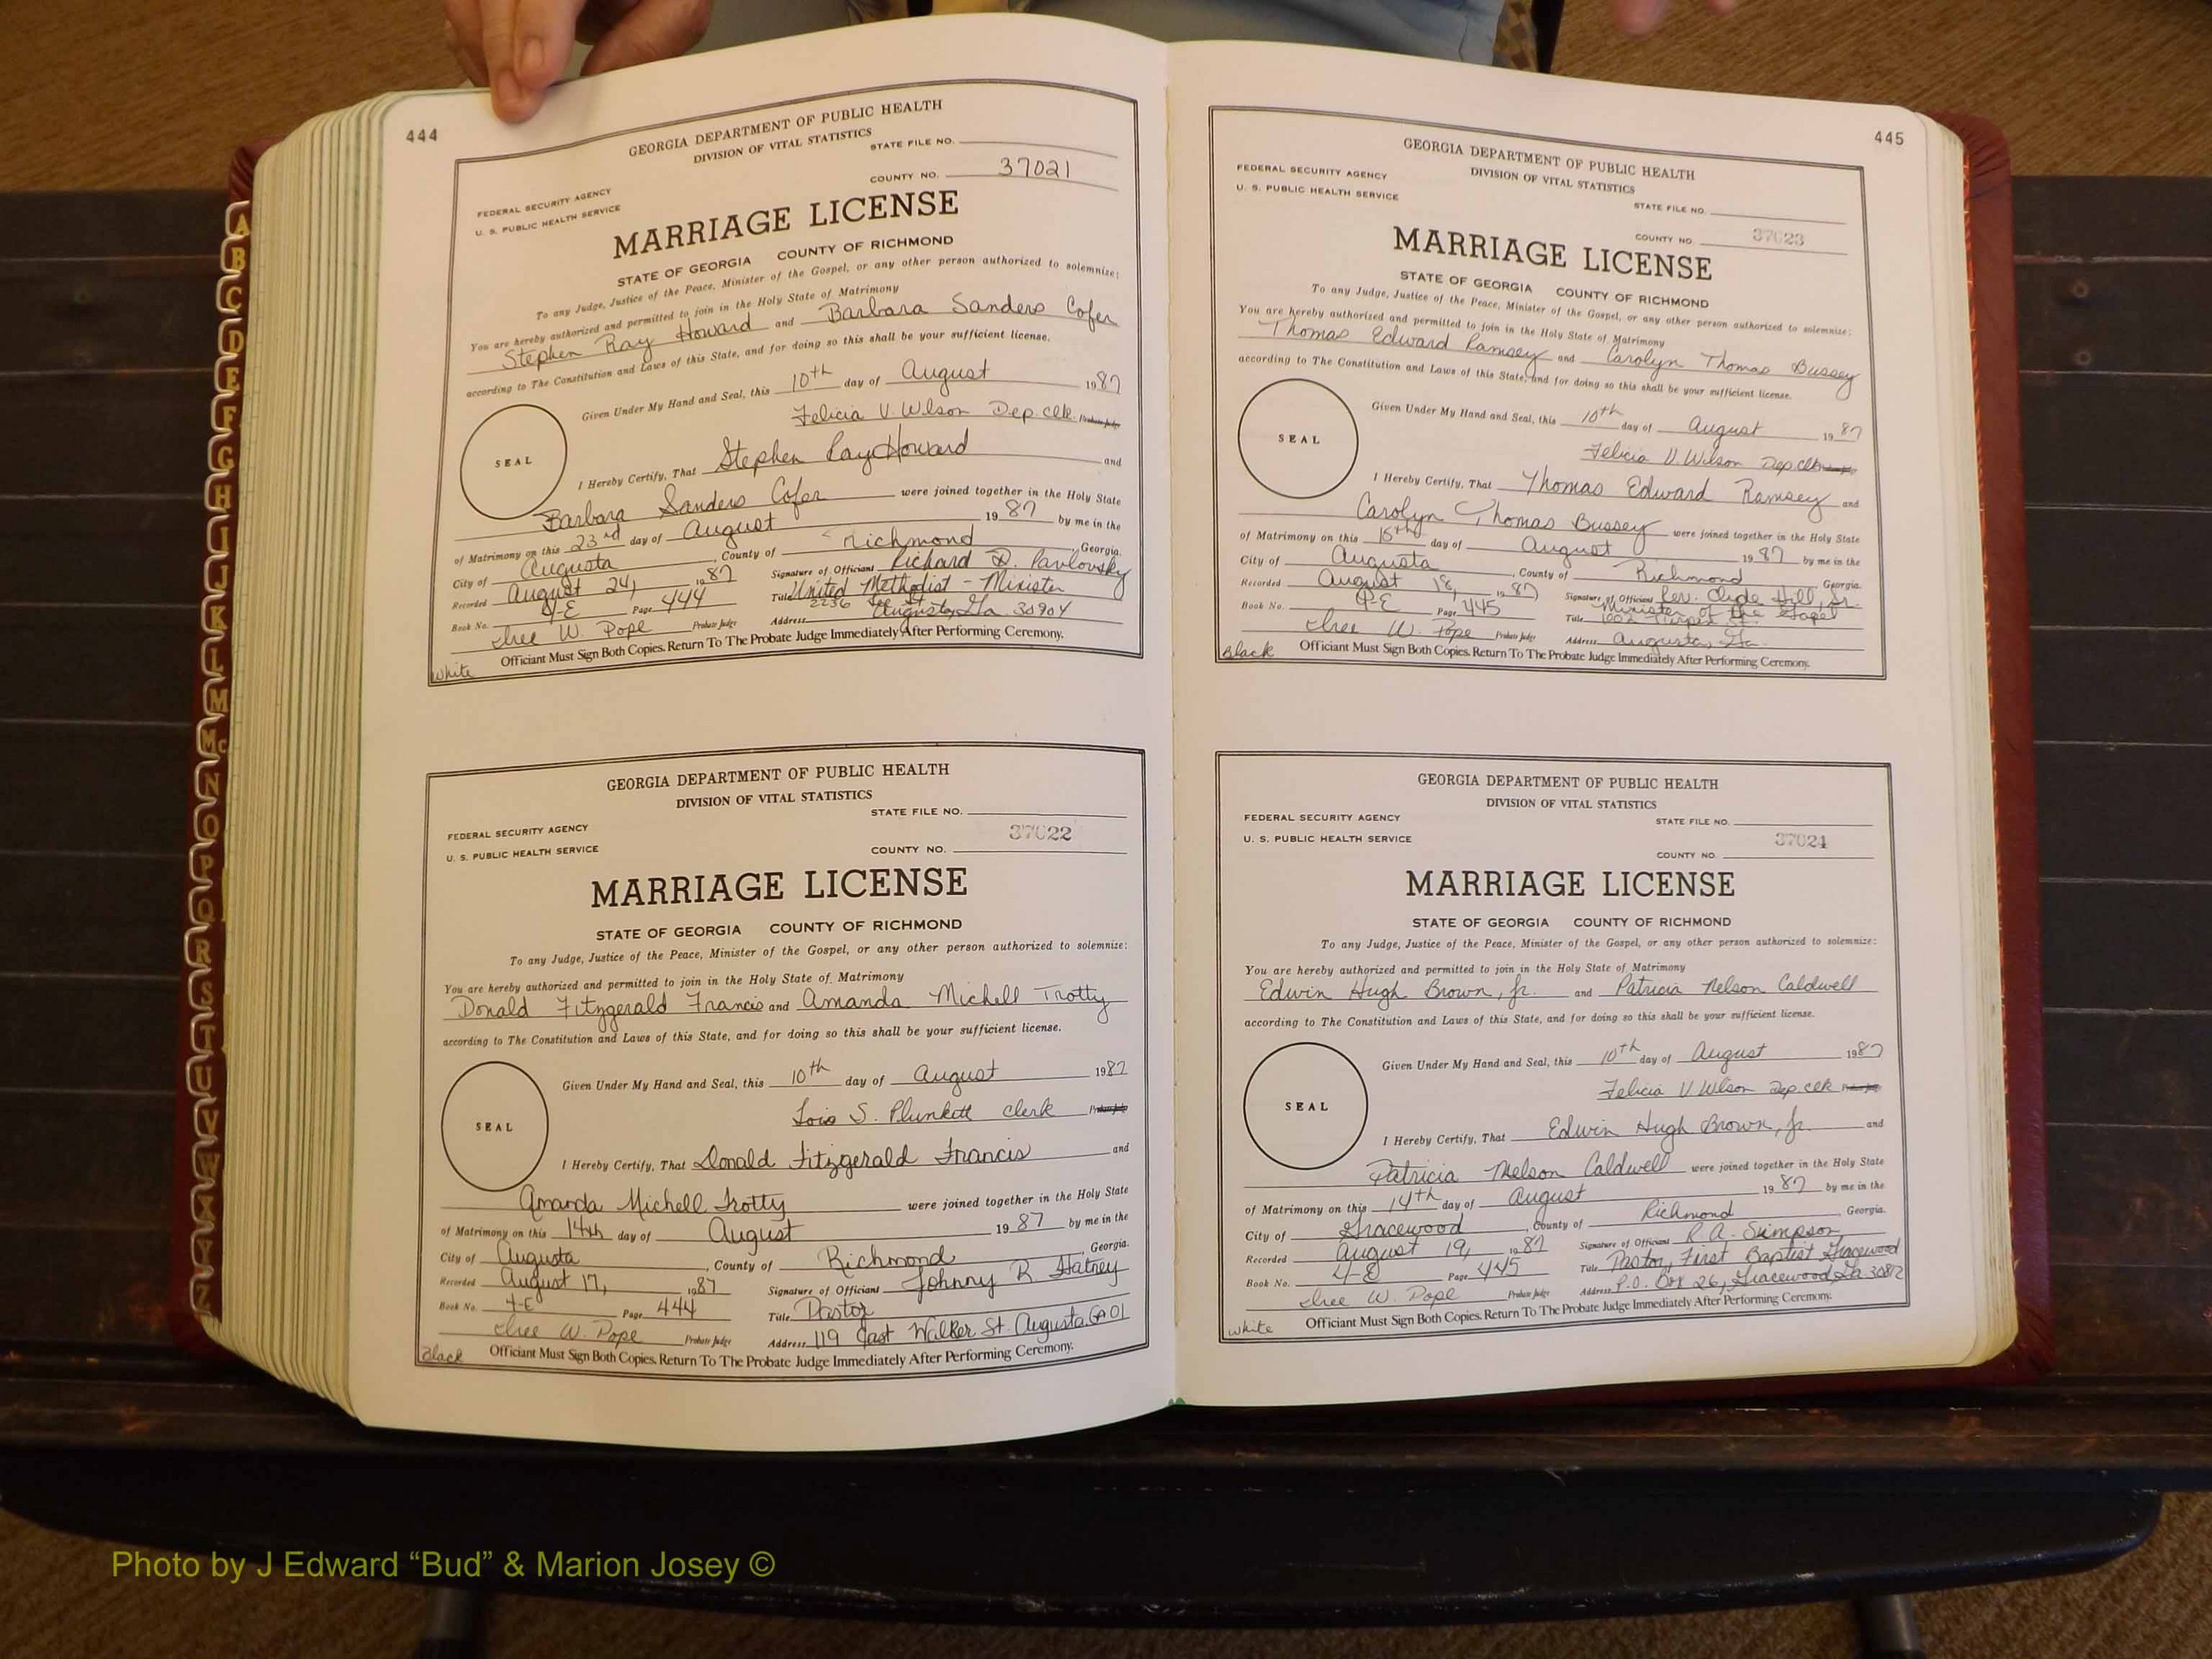 A
B
C
D
E
F
G
H
I
J
K
L
M
Mc
N
O
P
Q
R
S
T
U
V
W
X
Y
Z
444
GEORGIA DEPARTMENT OF PUBLIC HEALTH
DIVISION OF VITAL STATISTICS
STATE FILE NO.
FEDERAL SECURITY AGENCY
U. S. PUBLIC HEALTH SERVICE
COUNTY NO. 37021
MARRIAGE LICENSE
STATE OF GEORGIA COUNTY OF RICHMOND
To any Judge, Justice of the Peace, Minister of the Gospel, or any other person authorized to solemnize:
You are hereby authorized and permitted to join in the Holy State of Matrimony
Stephen Ray Howard and Barbara Sanders Cofer
according to The Constitution and Laws of this State, and for doing so this shall be your sufficient license.
Given Under My Hand and Seal, this 10th day of August 1987
Felicia V. Wilson Dep. Clk. Probate Judge
SEAL
I Hereby Certify, That Stephen Ray Howard and
Barbara Sanders Cofer were joined together in the Holy State
of Matrimony on this 23rd day of August 1987 by me in the
City of Augusta, County of Richmond, Georgia.
Recorded August 24, 1987 Signature of Officiant Richard D. Pavlovsky
Book No. 4-E Page 444 Title United Methodist - Minister
Shee W. Pope Probate Judge Address 2236 Augusta, Ga 30904
Officiant Must Sign Both Copies. Return To The Probate Judge Immediately After Performing Ceremony.
White
GEORGIA DEPARTMENT OF PUBLIC HEALTH
DIVISION OF VITAL STATISTICS
STATE FILE NO.
FEDERAL SECURITY AGENCY
U. S. PUBLIC HEALTH SERVICE
COUNTY NO. 37022
MARRIAGE LICENSE
STATE OF GEORGIA COUNTY OF RICHMOND
To any Judge, Justice of the Peace, Minister of the Gospel, or any other person authorized to solemnize:
You are hereby authorized and permitted to join in the Holy State of Matrimony
Donald Fitzgerald Francis and Amanda Michell Trotty
according to The Constitution and Laws of this State, and for doing so this shall be your sufficient license.
Given Under My Hand and Seal, this 10th day of August 1987
Lois S. Plunkett Clerk Probate Judge
SEAL
I Hereby Certify, That Donald Fitzgerald Francis and
Amanda Michell Trotty were joined together in the Holy State
of Matrimony on this 14th day of August 1987 by me in the
City of Augusta, County of Richmond, Georgia.
Recorded August 17, 1987 Signature of Officiant Johnny R. Hatney
Book No. 4-E Page 444 Title Pastor
Shee W. Pope Probate Judge Address 119 East Walker St. Augusta GA 01
Officiant Must Sign Both Copies. Return To The Probate Judge Immediately After Performing Ceremony.
Black
445
GEORGIA DEPARTMENT OF PUBLIC HEALTH
DIVISION OF VITAL STATISTICS
FEDERAL SECURITY AGENCY
U. S. PUBLIC HEALTH SERVICE
STATE FILE NO.
COUNTY NO. 37023
MARRIAGE LICENSE
STATE OF GEORGIA COUNTY OF RICHMOND
To any Judge, Justice of the Peace, Minister of the Gospel, or any other person authorized to solemnize:
You are hereby authorized and permitted to join in the Holy State of Matrimony
Thomas Edward Ramsey and Carolyn Thomas Bussey
according to The Constitution and Laws of this State, and for doing so this shall be your sufficient license.
Given Under My Hand and Seal, this 10th day of August 1987
Felicia V. Wilson Dep Clk
SEAL
I Hereby Certify, That Thomas Edward Ramsey and
Carolyn Thomas Bussey were joined together in the Holy State
of Matrimony on this 15th day of August 1987 by me in the
City of Augusta, County of Richmond, Georgia.
Recorded August 18, 1987 Signature of Officiant Rev. Clyde Hill, Sr.
Book No. 4-E Page 445 Title Minister of the Gospel
Shee W. Pope Probate Judge Address Augusta, Ga
Officiant Must Sign Both Copies. Return To The Probate Judge Immediately After Performing Ceremony.
Black
GEORGIA DEPARTMENT OF PUBLIC HEALTH
DIVISION OF VITAL STATISTICS
FEDERAL SECURITY AGENCY
STATE FILE NO.
U. S. PUBLIC HEALTH SERVICE
COUNTY NO. 37024
MARRIAGE LICENSE
STATE OF GEORGIA COUNTY OF RICHMOND
To any Judge, Justice of the Peace, Minister of the Gospel, or any other person authorized to solemnize:
You are hereby authorized and permitted to join in the Holy State of Matrimony
Edwin Hugh Brown, Jr. and Patricia Nelson Caldwell
according to The Constitution and Laws of this State, and for doing so this shall be your sufficient license.
Given Under My Hand and Seal, this 10th day of August 1987
Felicia V Wilson Dep. Clk
SEAL
I Hereby Certify, That Edwin Hugh Brown, Jr. and
Patricia Nelson Caldwell were joined together in the Holy State
of Matrimony on this 14th day of August 1987 by me in the
City of Gracewood, County of Richmond, Georgia.
Recorded August 19, 1987 Signature of Officiant R. A. Skimpson
Book No. 4-E Page 445 Title Pastor, First Baptist Gracewood
Shee W. Pope Probate Judge Address P.O. Box 26, Gracewood, Ga 30812
Officiant Must Sign Both Copies. Return To The Probate Judge Immediately After Performing Ceremony.
White
Photo by J Edward “Bud” & Marion Josey ©